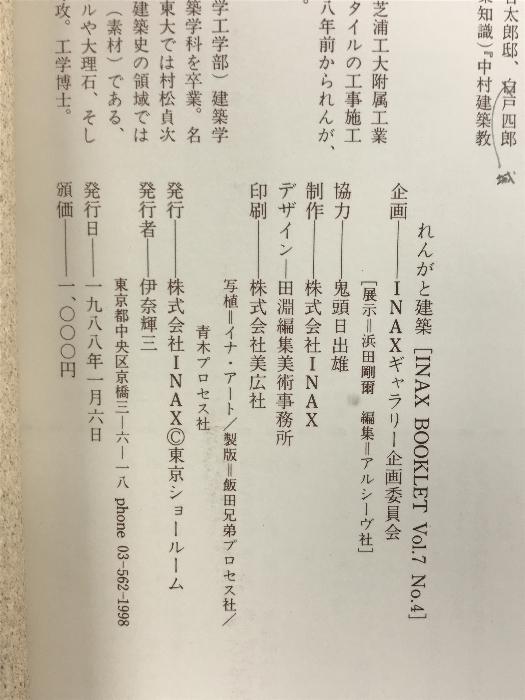 吉太郎邸、宮戸四郎
築知識)『中村建築教
城
芝浦工大附属工業
タイルの工事施工
八年前かられんが、
学工学部)建築学
築学科を卒業。名
東大では村松貞次
建築史の領域では
(素材)である、
ルや大理石、そし
攻。工学博士。
れんがと建築[INAX BOOKLET Vol.7 No.4]
企画――INAXギャラリー企画委員会
[展示=浜田剛爾 編集=アルシーヴ社]
協力――鬼頭日出雄
制作――株式会社INAX
デザイン―田淵編集美術事務所
印刷――株式会社美広社
写植=イナ・アート/製版=飯田兄弟プロセス社/
青木プロセス社
発行――株式会社INAX©東京ショールーム
発行者――伊奈輝三
東京都中央区京橋三―六―一八 phone 03-562-1998
発行日――一九八八年一月六日
頒価――一、〇〇〇円